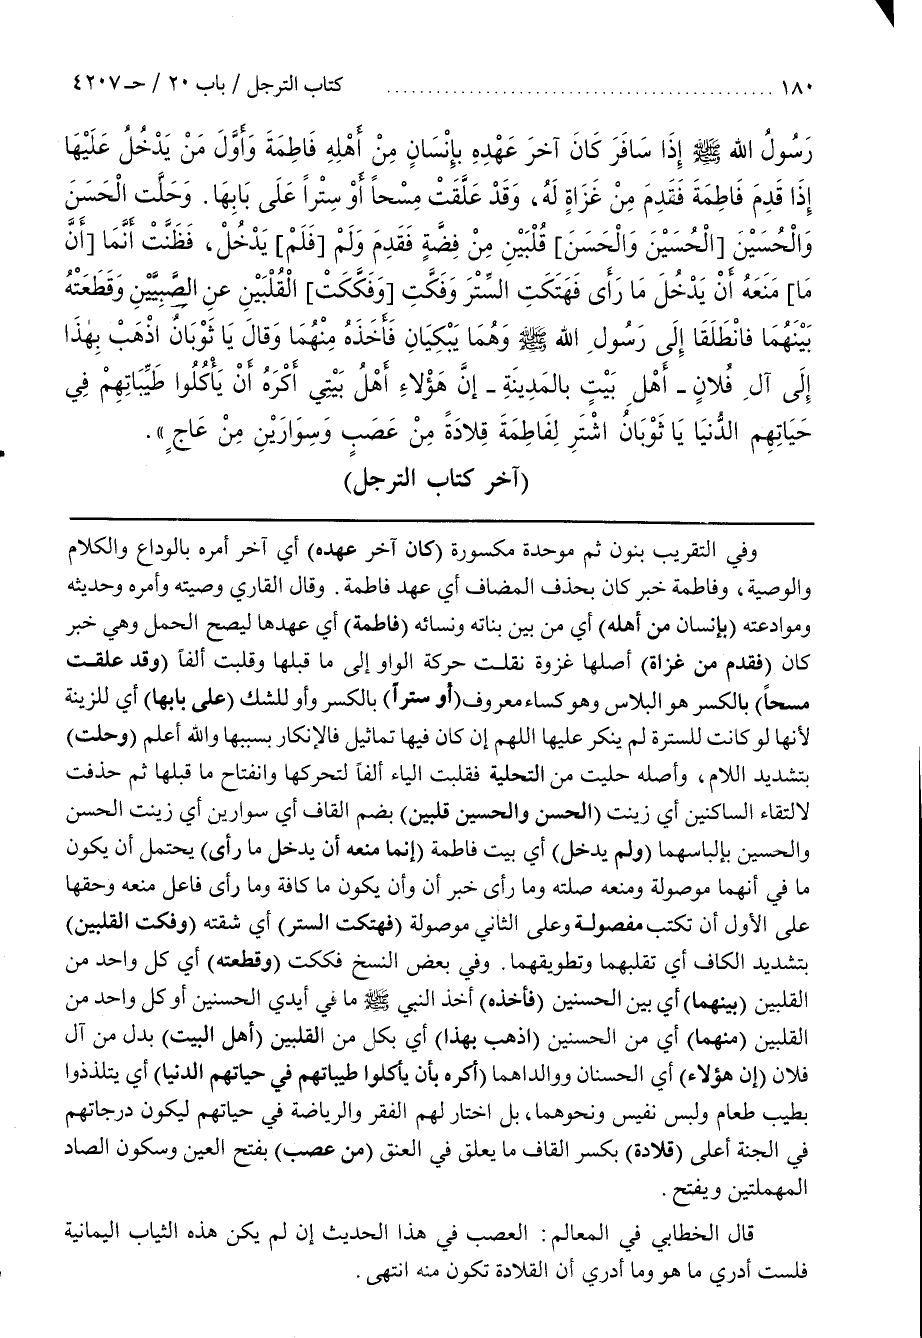 ١٨٠ ................................................ كتاب الترجل / باب ٢٠ / حـ ٤٢٠٧
رَسُولُ الله ﷺ إِذَا سَافَرَ كَانَ آخرَ عَهْدِهِ بِإِنْسَانٍ مِنْ أَهْلِهِ فَاطِمَةَ وَأَوَّلَ مَنْ يَدْخُلُ عَلَيْهَا
إِذَا قَدِمَ فَاطِمَةَ فَقَدِمَ مِنْ غَزَاةٍ لَهُ، وَقَدْ عَلَّقَتْ مِسْحاً أَوْ سِتْراً عَلَى بَابِهَا. وَحَلَّت الْحَسَنَ
وَالْحُسَيْنَ [الْحُسَيْنَ وَالْحَسَنَ] قُلْبَيْنِ مِنْ فِضَّةٍ فَقَدِمَ وَلَمْ [فَلَمْ] يَدْخُلْ، فَظَنَّتْ أَنَّمَا [أَنَّ
مَا] مَنَعَهُ أَنْ يَدْخُلَ مَا رَأَى فَهَتَكَتِ السِّتْرَ وَفَكَّتِ [وَفَكَّكَتْ] الْقُلْبَيْنِ عنِ الصَّبِيَّيْنِ وَقَطَعَتْهُ
بَيْنَهُمَا فانْطَلَقَا إِلَى رَسُولِ الله ﷺ وَهُمَا يَبْكِيَانِ فَأَخَذَهُ مِنْهُمَا وَقالَ يَا ثَوْبَانُ اذْهَبْ بِهٰذَا
إِلَى آلِ فُلَانٍ ـ أَهْلِ بَيْتٍ بالمَدِينَةِ ـ إنَّ هَؤُلَاءِ أَهْلُ بَيْتِي أَكْرَهُ أَنْ يَأْكُلُوا طَيِّبَاتِهِمْ فِي
حَيَاتِهِم الدُّنْيَا يَا ثَوْبَانُ اشْتَرِ لِفَاطِمَةَ قِلادَةً مِنْ عَصَبٍ وَسِوَارَيْنِ مِنْ عَاجٍ».
(آخر كتاب الترجل)
وفي التقريب بنون ثم موحدة مكسورة (كان آخر عهده) أي آخر أمره بالوداع والكلام
والوصية، وفاطمة خبر كان بحذف المضاف أي عهد فاطمة. وقال القاري وصيته وأمره وحديثه
وموادعته (بإنسان من أهله) أي من بين بناته ونسائه (فاطمة) أي عهدها ليصح الحمل وهي خبر
كان (فقدم من غزاة) أصلها غزوة نقلت حركة الواو إلى ما قبلها وقلبت ألفاً (وقد علقت
مسحاً) بالكسر هو البلاس وهو كساء معروف (أو ستراً) بالكسر وأو للشك (على بابها) أي للزينة
لأنها لو كانت للسترة لم ينكر عليها اللهم إن كان فيها تماثيل فالإنكار بسببها والله أعلم (وحلت)
بتشديد اللام، وأصله حليت من التحلية فقلبت الياء ألفاً لتحركها وانفتاح ما قبلها ثم حذفت
لالتقاء الساكنين أي زينت (الحسن والحسين قلبين) بضم القاف أي سوارين أي زينت الحسن
والحسين بإلباسهما (ولم يدخل) أي بيت فاطمة (إنما منعه أن يدخل ما رأى) يحتمل أن يكون
ما في أنهما موصولة ومنعه صلته وما رأى خبر أن وأن يكون ما كافة وما رأى فاعل منعه وحقها
على الأول أن تكتب مفصولة وعلى الثاني موصولة (فهتكت الستر) أي شقته (وفكت القلبين)
بتشديد الكاف أي تقلبهما وتطويقهما. وفي بعض النسخ فككت (وقطعته) أي كل واحد من
القلبين (بينهما) أي بين الحسنين (فأخذه) أخذ النبي ﷺ ما في أيدي الحسنين أو كل واحد من
القلبين (منهما) أي من الحسنين (اذهب بهذا) أي بكل من القلبين (أهل البيت) بدل من آل
فلان (إن هؤلاء) أي الحسنان ووالداهما (أكره بأن يأكلوا طيباتهم في حياتهم الدنيا) أي يتلذذوا
بطيب طعام ولبس نفيس ونحوهما، بل اختار لهم الفقر والرياضة في حياتهم ليكون درجاتهم
في الجنة أعلى (قلادة) بكسر القاف ما يعلق في العنق (من عصب) بفتح العين وسكون الصاد
المهملتين ويفتح.
قال الخطابي في المعالم: العصب في هذا الحديث إن لم يكن هذه الثياب اليمانية
فلست أدري ما هو وما أدري أن القلادة تكون منه انتهى.